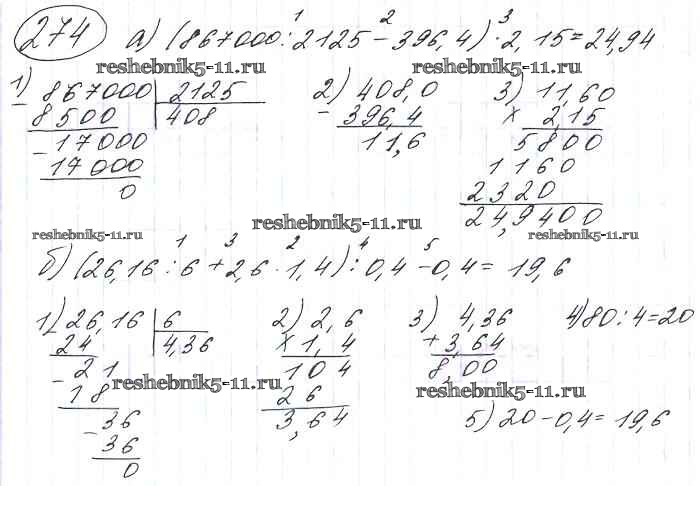 274 а) (867000 : 2125 - 396,4) · 2,15 = 24,94
1 2 3
reshebnik5-11.ru
1) 867000 | 2125
- 8500 | 408
- 17000
17000
0
2) 408,0
- 396,4
11,6
3) 11,60
× 2,15
5800
1160
2320
24,9400
reshebnik5-11.ru
reshebnik5-11.ru
reshebnik5-11.ru
б) (26,16 : 6 + 2,6 · 1,4) : 0,4 - 0,4 = 19,6
1 3 2 4 5
1) 26,16 | 6
24 | 4,36
- 21
18
- 36
36
0
2) 2,6
× 1,4
104
26
3,64
3) 4,36
+ 3,64
8,00
4) 80 : 4 = 20
reshebnik5-11.ru
reshebnik5-11.ru
5) 20 - 0,4 = 19,6